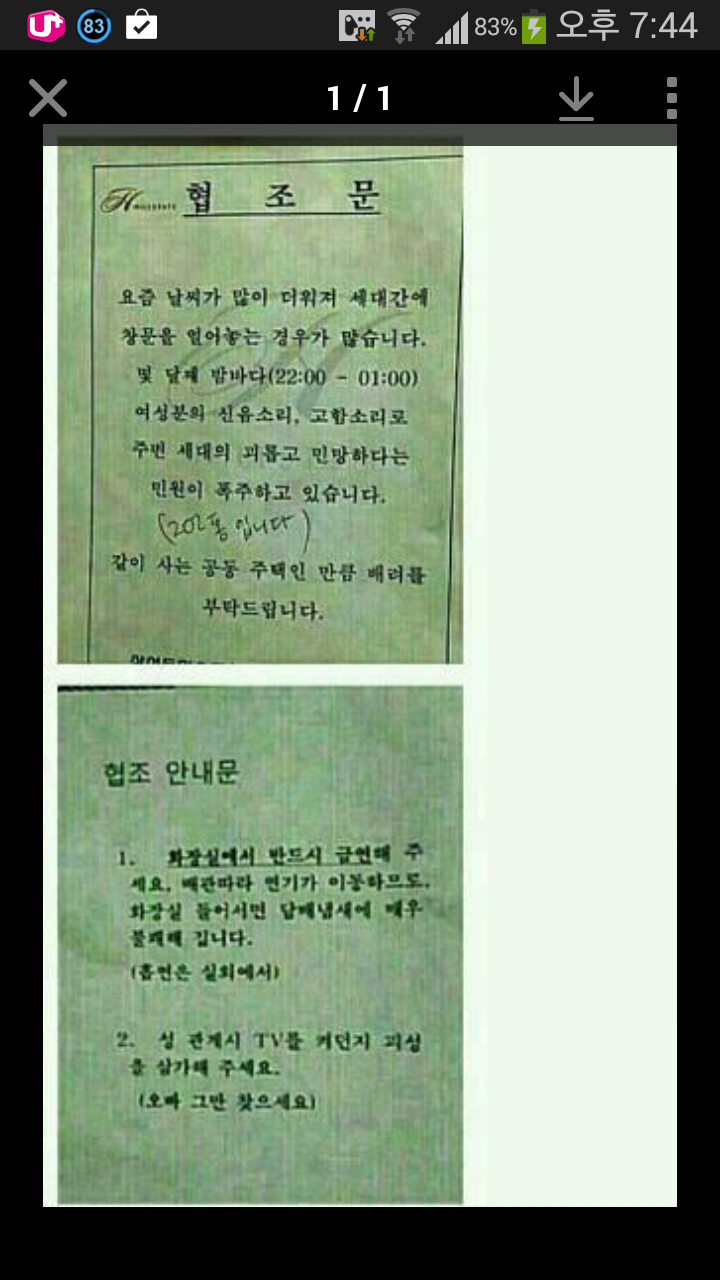 U+
83
83%
오후 7:44
1 / 1
협 조 문
요즘 날씨가 많이 더워져 세대간에
창문을 열어놓는 경우가 많습니다.
몇 달째 밤바다(22:00 - 01:00)
여성분의 신음소리, 고함소리로
주변 세대의 괴롭고 민망하다는
민원이 폭주하고 있습니다.
(202동 입니다)
같이 사는 공동 주택인 만큼 배려를
부탁드립니다.
협조 안내문
1. 화장실에서 반드시 금연해 주
세요. 배관따라 연기가 이동하므로,
화장실 들어서면 담배냄새에 매우
불쾌해 집니다.
(흡연은 실외에서)
2. 성 관계시 TV를 켜던지 괴성
을 삼가해 주세요.
(오빠 그만 찾으세요)